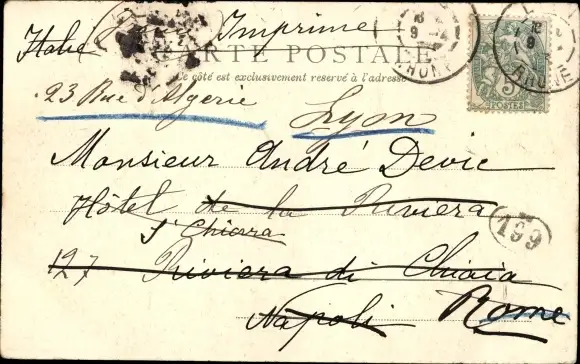 Italie Imprimé
CARTE POSTALE
Ce côté est exclusivement reservé à l'adresse
23 Rue d'Algerie Lyon
Monsieur André Devic
Hôtel de la Riviera
St Chiara
127 Riviera di Chiaia
Napoli Rome
RHONE
RHONE
5
POSTES
199